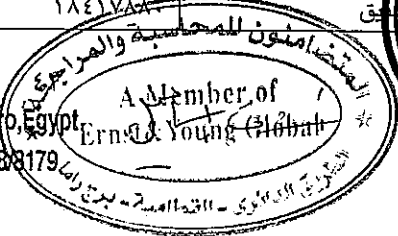 ١٨٤١٧٨٨٠
المتضامنون للمحاسبة والمراجعة
A Member of
Ernst & Young Global
ro, Egypt
8/8179
الطريق الدائرى - القطامية - برج راما